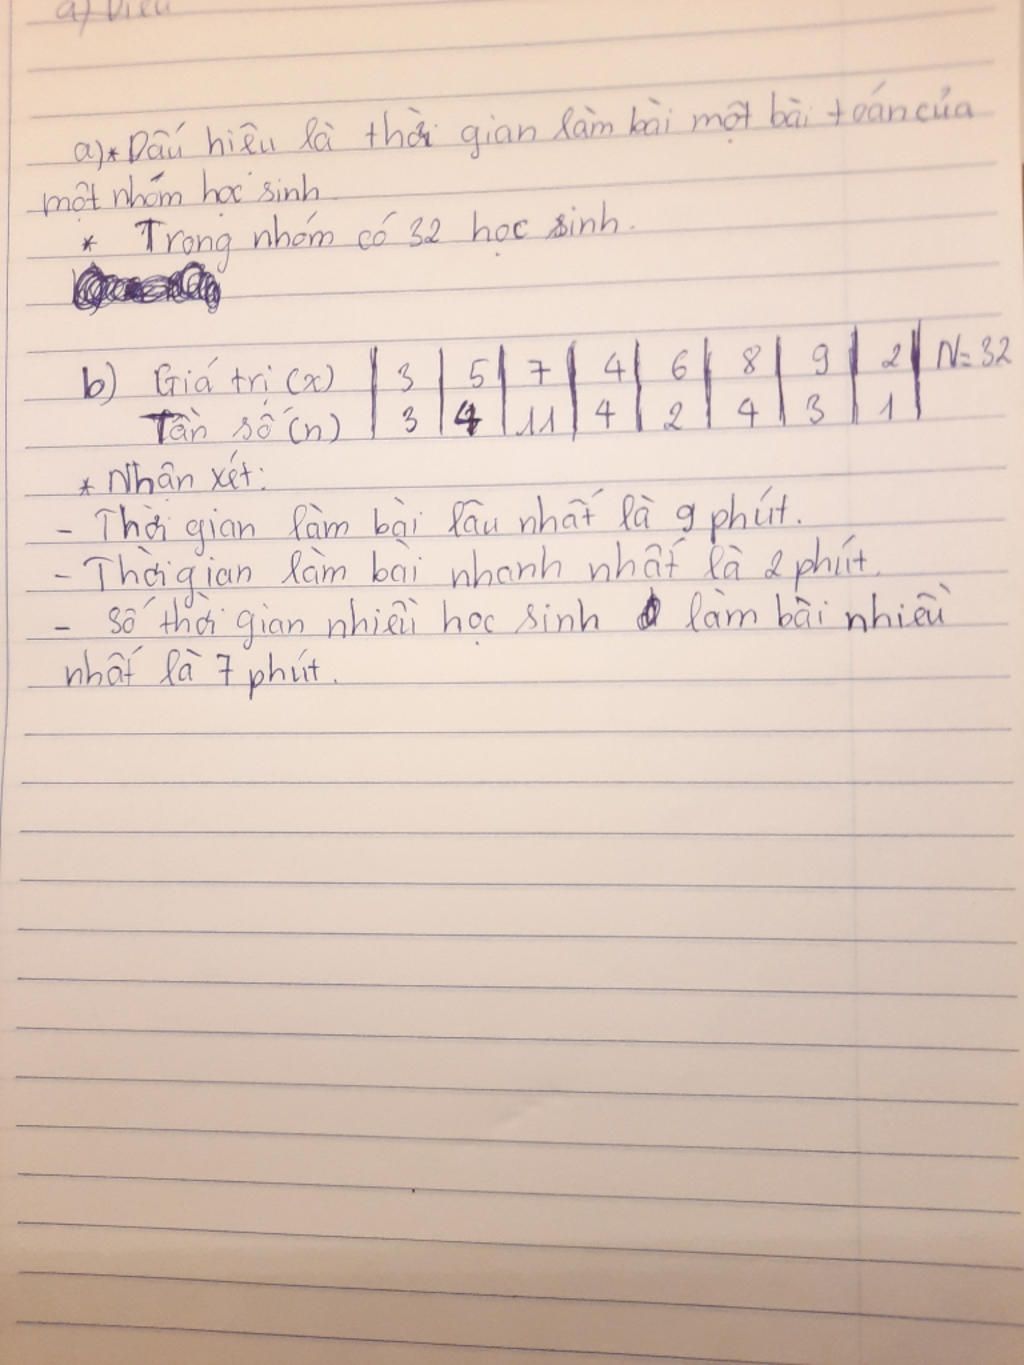 a)* Dấu hiệu là thời gian làm bài một bài toán của
một nhóm học sinh
* Trong nhóm có 32 học sinh.
b) Giá trị (x) | 3 | 5 | 7 | 4 | 6 | 8 | 9 | 2 | N=32
Tần số (n) | 3 | 4 | 11 | 4 | 2 | 4 | 3 | 1 |
* Nhận xét:
- Thời gian làm bài lâu nhất là 9 phút.
- Thời gian làm bài nhanh nhất là 2 phút.
- Số thời gian nhiều học sinh làm bài nhiều
nhất là 7 phút.